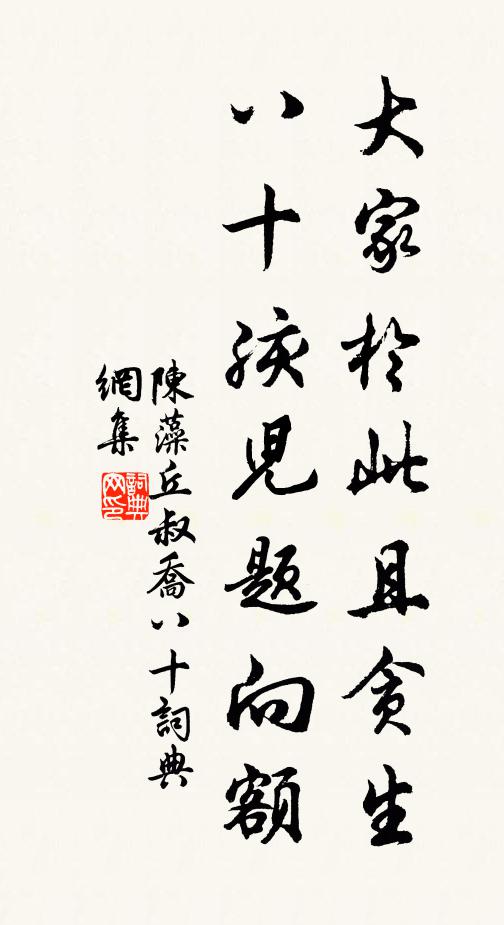 大家於此且貪生
八十孩兒題向額
陳藻丘叔喬八十詞典
網集
詞典
网印